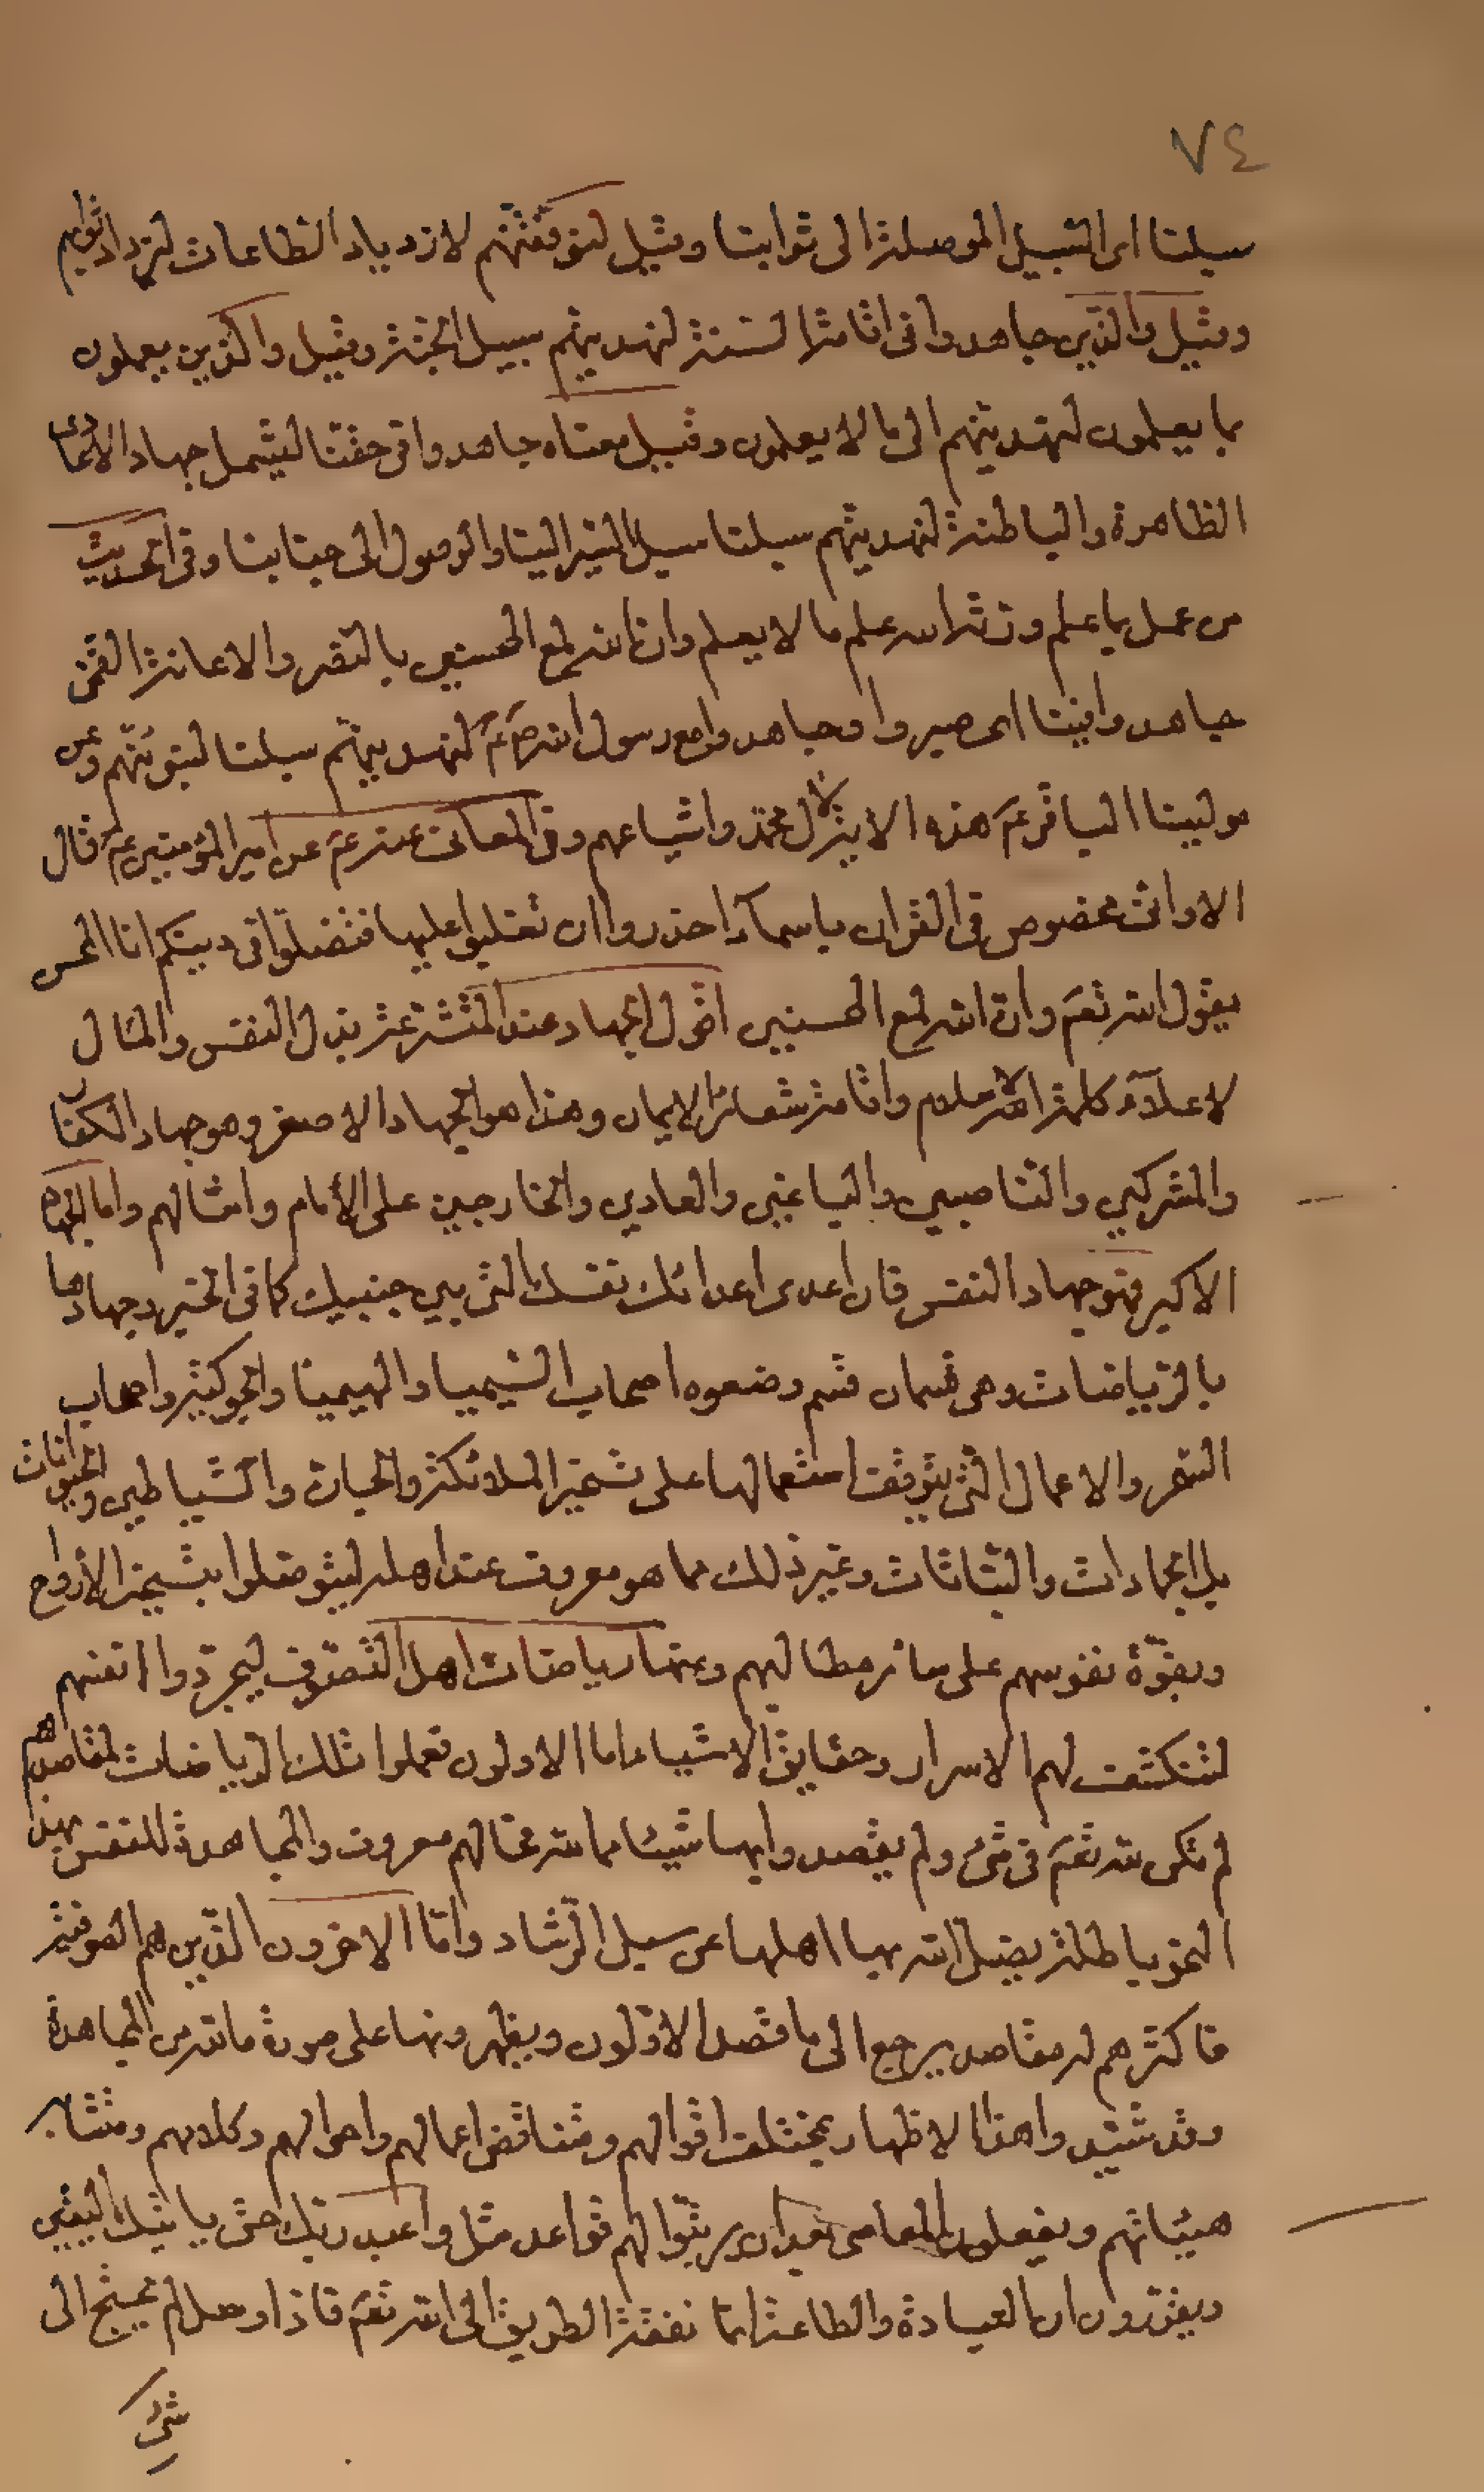 ٧٤
سبلنا اى السبيل الموصلة الى ثوابنا وقيل لنوفقنهم لازدياد الطاعات ليزداد ثوابهم
وقيل والذين جاهدوا فى اقامة السنة لنهدينهم سبيل الجنة وقيل والذين يعملون
بما يعلمون لنهدينهم الى ما لا يعلمون وقيل معناه جاهدوا فى حقنا ليشمل جهاد الاعادى
الظاهرة والباطنة لنهدينهم سبلنا سبل السير الينا والوصول الى جنابنا وفى الحديث
من عمل بما علم ورثه الله علم ما لا يعلم وان الله لمع المحسنين بالنصر والاعانة القمى
جاهدوا فينا اى صبروا وجاهدوا مع رسول الله ص ع لنهدينهم سبلنا لنثبتنهم وعن
مولينا الباقر ع هذه الاية لال محمد واشياعهم وفى المعانى عنه ع عن امير المؤمنين ع قال
الا وانى مخصوص فى القران باسماء احذروا ان تغلبوا عليها فتضلوا فى دينكم انا المحسن
يقول الله تعم وان الله لمع المحسنين اقول الجهاد عند المتشرعة بذل النفس والمال
لاعلاء كلمة الاسلام واقامة شعائر الايمان وهذا هو الجهاد الاصغر وهو جهاد الكفار
والمشركين والناصبين والباغين والعادين والخارجين على الأمام وامثالهم واما الجهاد
الاكبر فهو جهاد النفس فان اعدى اعدائك نفسك التى بين جنبيك كما فى الخبر وجهادها
بالرياضات وهى قسمان قسم وضعوه اصحاب السيميا والهيميا والجوكية واصحاب
السحر والاعمال التى يتوقف استعمالها على تسخير الملائكة والجان والشياطين والحيوانات
بل الجمادات والنباتات وغير ذلك مما هو معروف عند اهله ليتوصلوا بتسخير الأرواح
وبقوة نفوسهم على سائر مطالبهم ومنها رياضات اهل التصوف ليجردوا انفسهم
لتنكشف لهم الاسرار وحقايق الاشياء اما الاولون فعملوا تلك الرياضات لمقاصدهم
لم تكن لله تعم فى شئ ولم يقصدوا بها شيئا مما لله فحالهم معروف والمجاهدة للنفس بهذا
النحو باطلة يضل الله بها اهلها عن سبيل الرشاد واما الاخرون الذين هم الصوفية
فاكثرهم له مقاصد يرجع الى ما قصد الاولون ويظهرونها على صورة ما لله من المجاهدة
وقد شيدوا هذا الاظهار بمختلف اقوالهم ومتناقض اعمالهم واحوالهم وكلامهم ومتشابه
هيئاتهم ويفعلون المعاصى بعد ان رتبوا لهم قواعد مثل واعبد ربك حتى ياتيك اليقين
ويقررون ان العبادة والطاعة انما نفقة الطريق الى الله تعم فاذا وصل لم يحتج الى
شئ